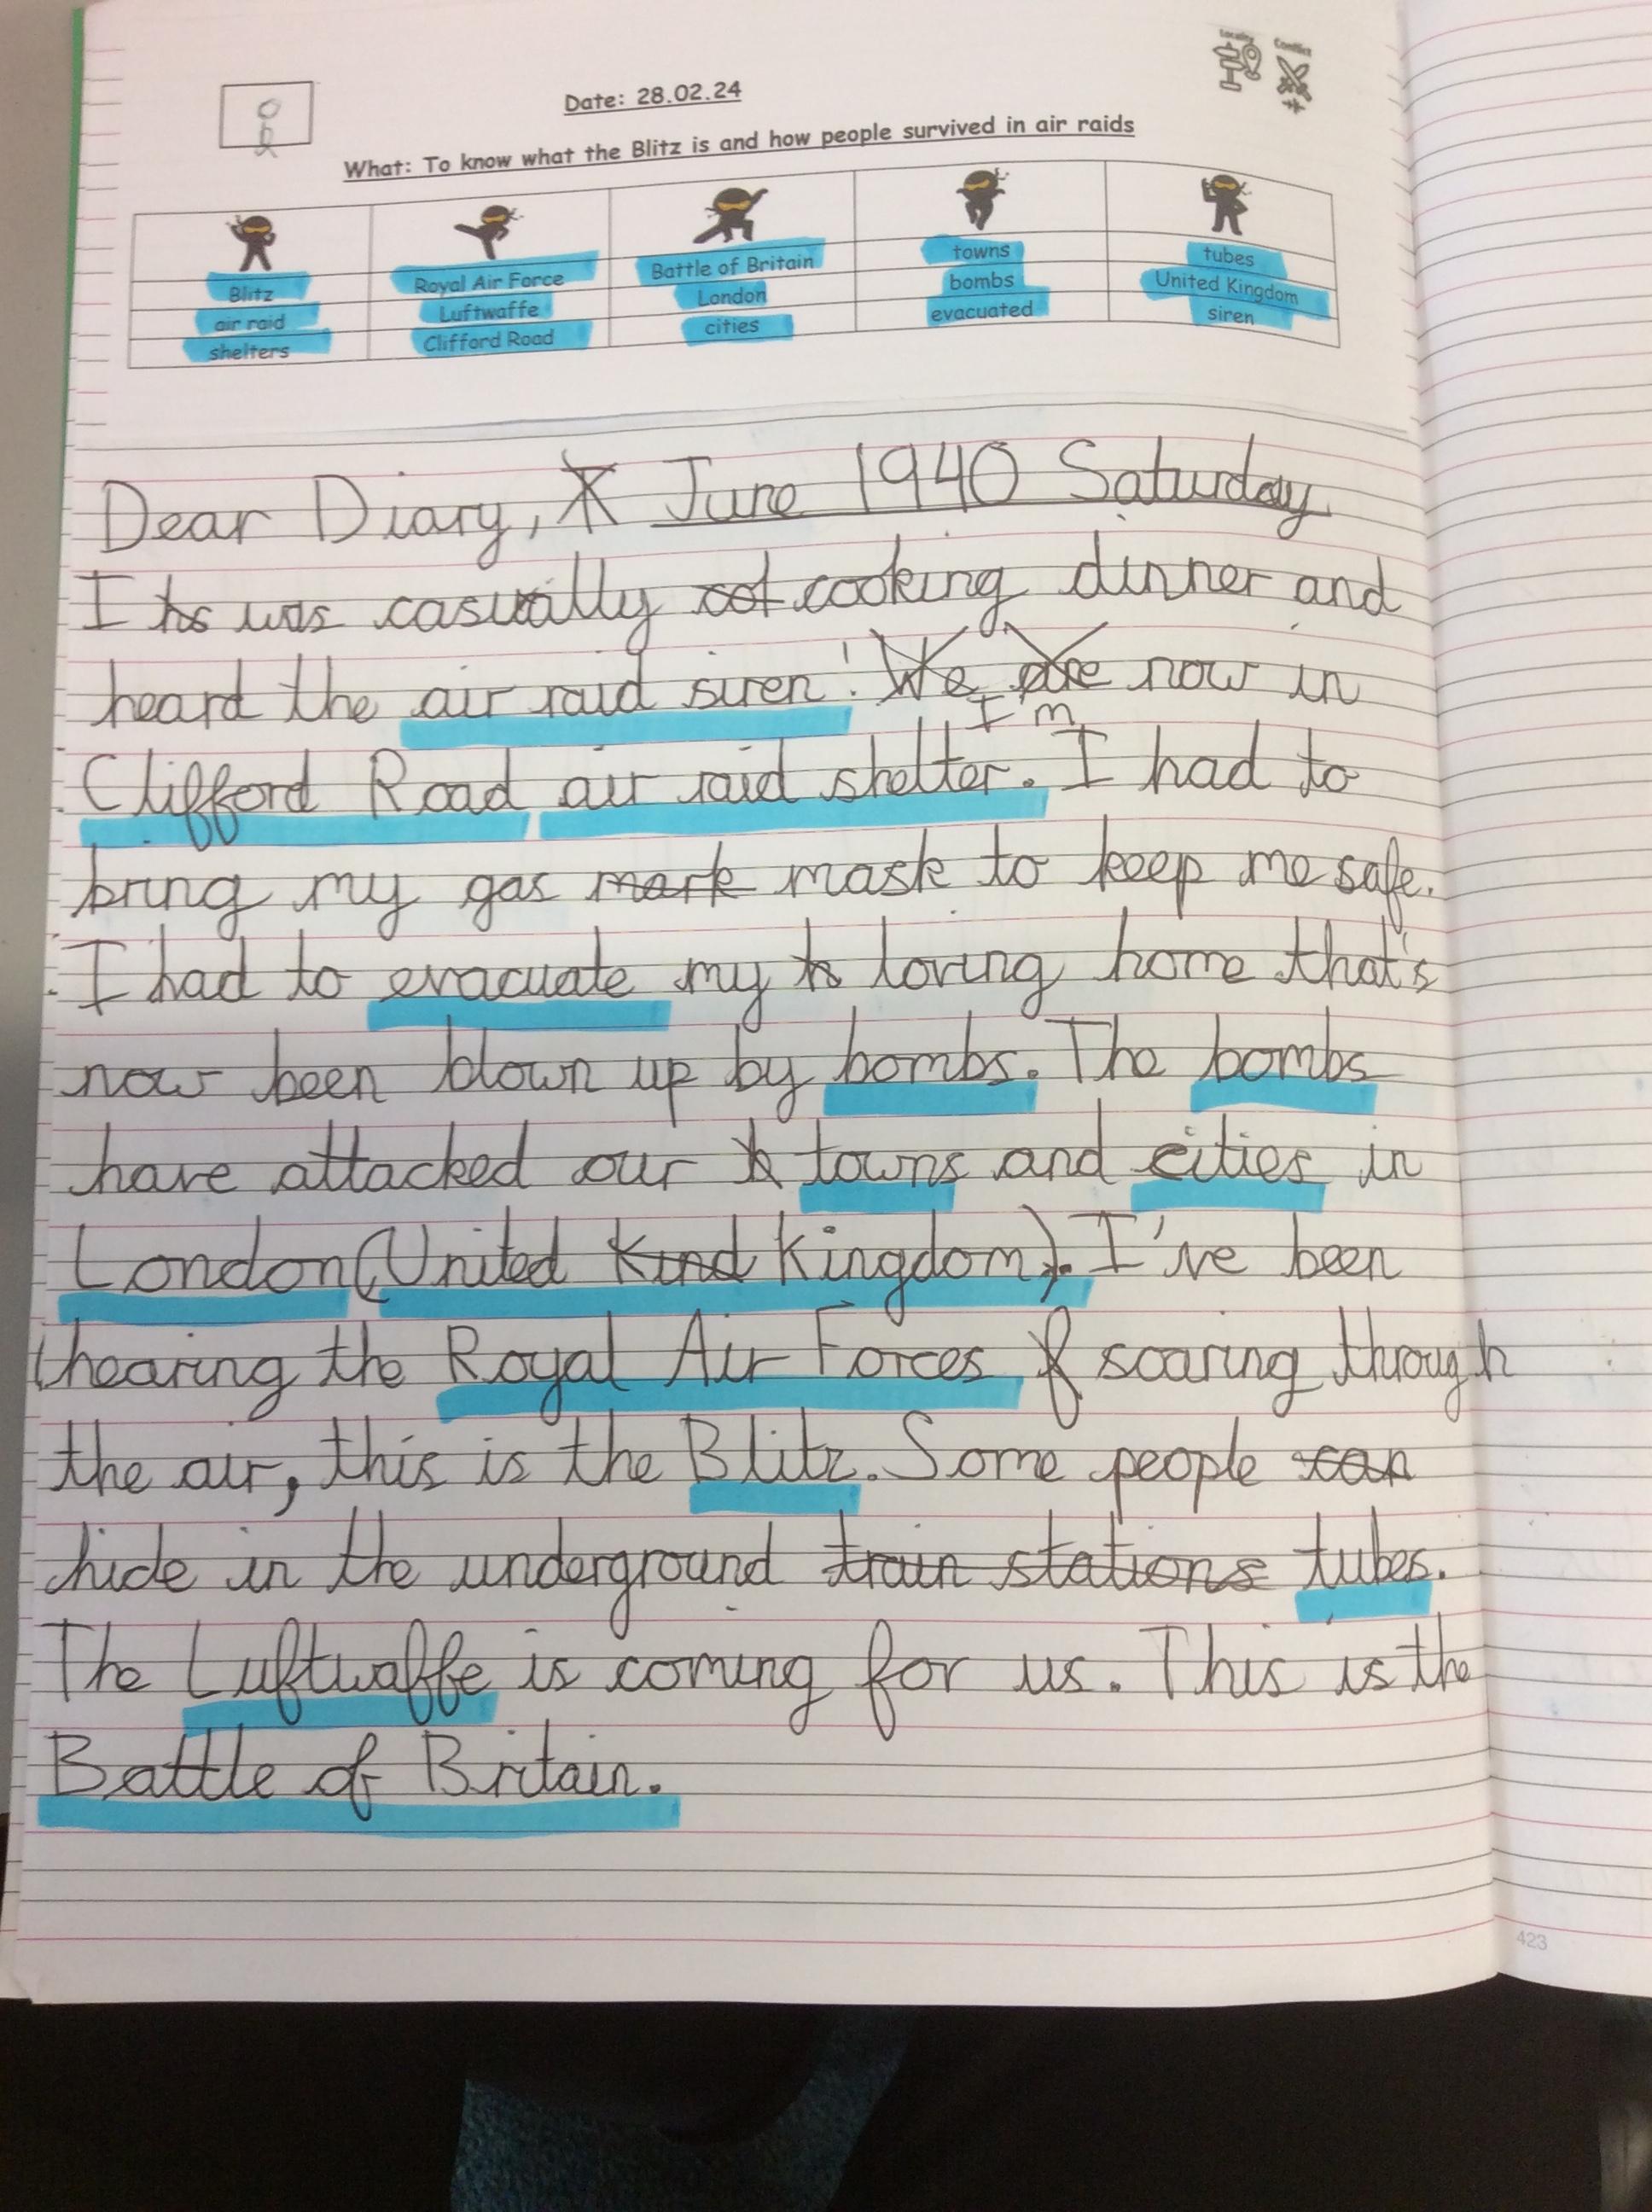 Locality Conflict
Date: 28.02.24
What: To know what the Blitz is and how people survived in air raids
Blitz Royal Air Force Battle of Britain towns tubes
air raid Luftwaffe London bombs United Kingdom
shelters Clifford Road cities evacuated siren
Dear Diary, June 1940 Saturday
I hs was casually cot cooking dinner and
heard the air raid siren! We are now in
I'm
Clifford Road air raid shelter. I had to
bring my gas mark mask to keep me safe.
I had to evacuate my h loving home that's
now been blown up by bombs. The bombs
have attacked our towns and cities in
London (United Kind Kingdom). I've been
hearing the Royal Air Forces f soaring through
the air, this is the Blitz. Some people can
hide in the underground train stations tubes.
The Luftwaffe is coming for us. This is the
Battle of Britain.
423